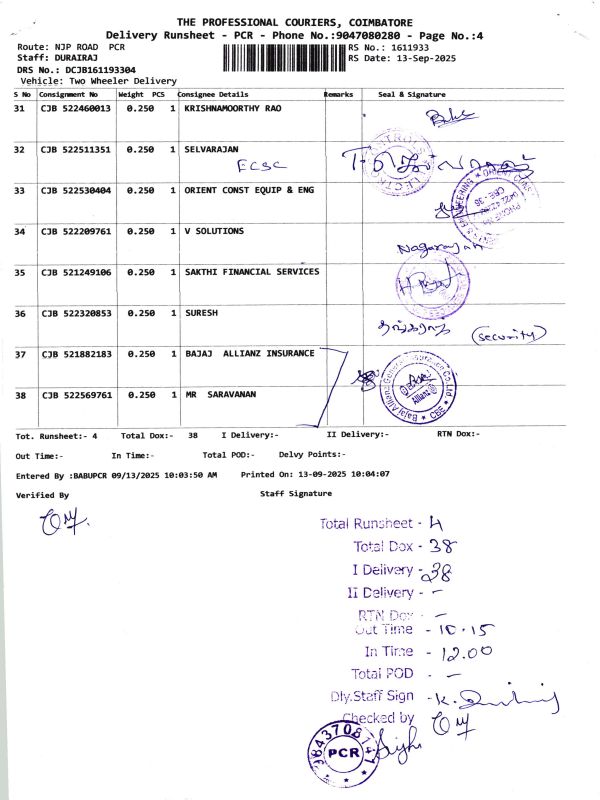 THE PROFESSIONAL COURIERS, COIMBATORE
Delivery Runsheet - PCR - Phone No.:9047080280 - Page No.:4
Route: NJP ROAD PCR
RS No.: 1611933
Staff: DURAIRAJ
RS Date: 13-Sep-2025
DRS No.: DCJB161193304
Vehicle: Two Wheeler Delivery
S No Consignment No Weight PCS Consignee Details Remarks Seal & Signature
31 CJB 522460013 0.250 1 KRISHNAMOORTHY RAO
32 CJB 522511351 0.250 1 SELVARAJAN
ECSC
33 CJB 522530404 0.250 1 ORIENT CONST EQUIP & ENG
34 CJB 522209761 0.250 1 V SOLUTIONS
Nagarajan
35 CJB 521249106 0.250 1 SAKTHI FINANCIAL SERVICES
36 CJB 522320853 0.250 1 SURESH
(security)
37 CJB 521882183 0.250 1 BAJAJ ALLIANZ INSURANCE
Bajaj Allianz General Insurance Co.Ltd. * CBE *
38 CJB 522569761 0.250 1 MR SARAVANAN
Tot. Runsheet:- 4 Total Dox:- 38 I Delivery:- II Delivery:- RTN Dox:-
Out Time:- In Time:- Total POD:- Delvy Points:-
Entered By :BABUPCR 09/13/2025 10:03:50 AM Printed On: 13-09-2025 10:04:07
Verified By Staff Signature
Total Runsheet - 4
Total Dox - 38
I Delivery - 38
II Delivery - -
RTN Dox - -
Out Time - 10.15
In Time - 12.00
Total POD - -
Dly.Staff Sign -
Checked by
PCR